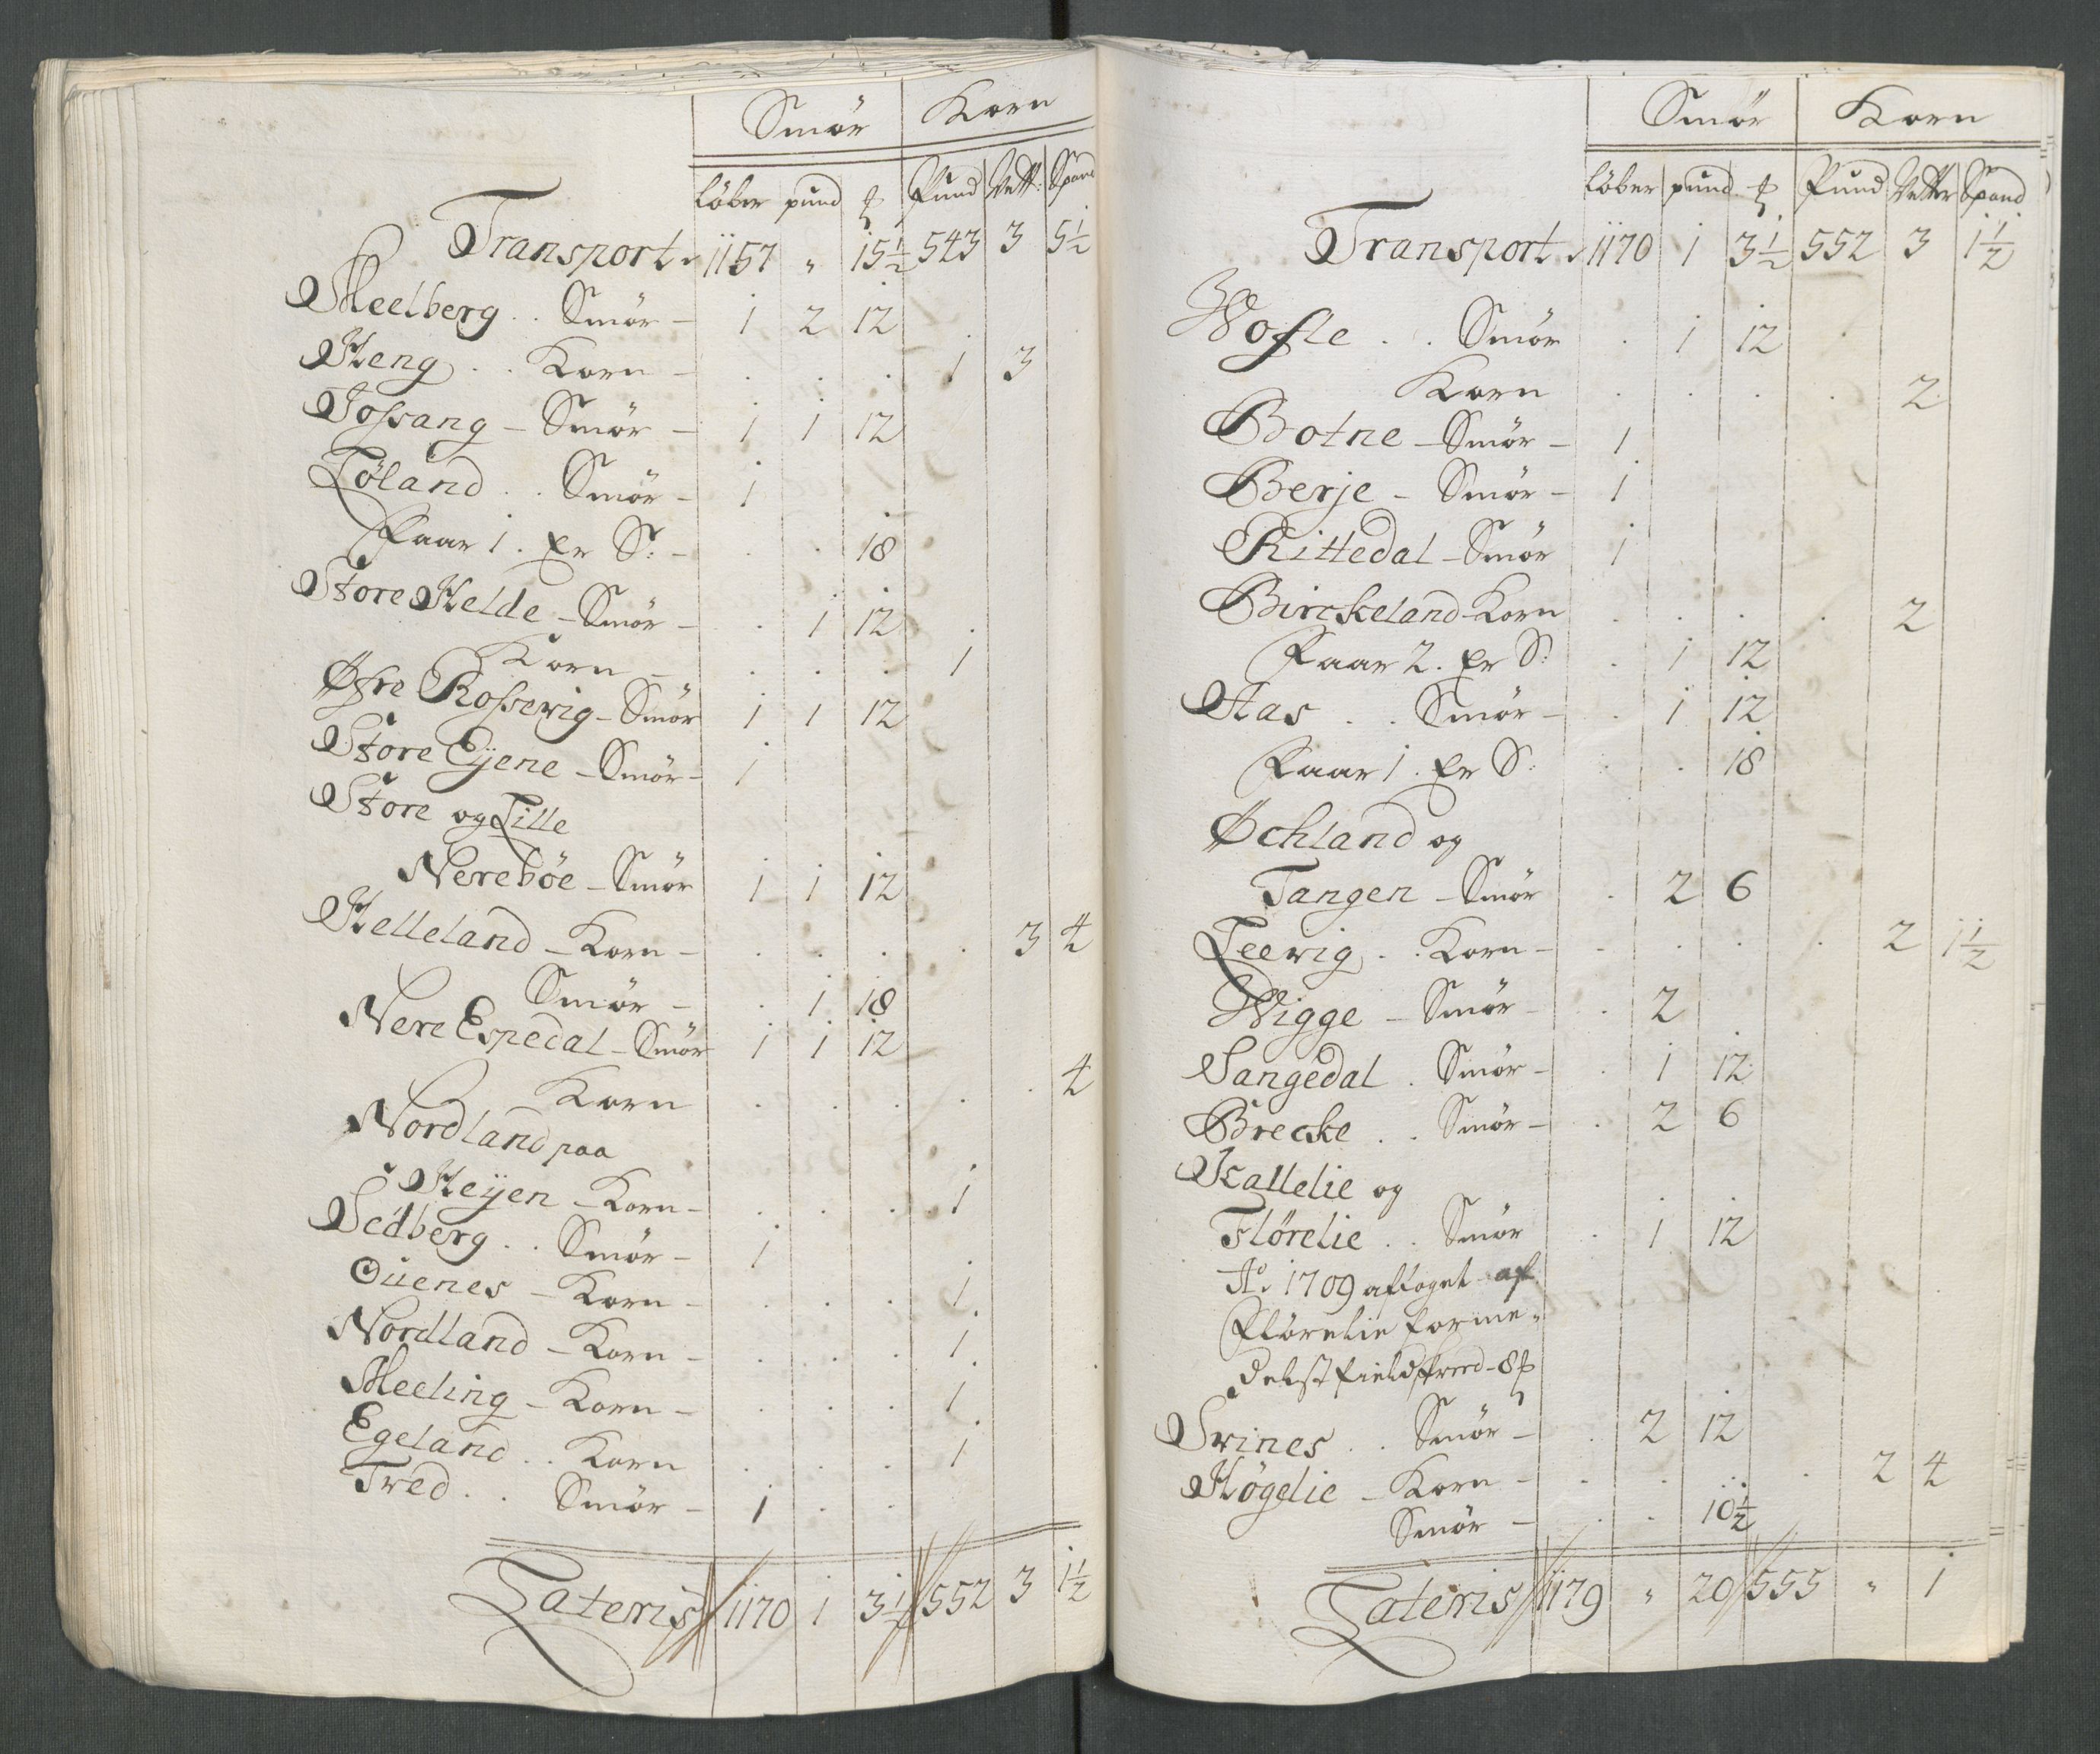 Smör Korn
Löber pund ℔ Pund Vett: Spand
Transport. 1157 " 15½ 543 3 5½
Meelberg . . Smör – 1 2 12
Heng . . Korn – . . . 1 3
Jossang – Smör – 1 1 12
Löland . . Smör – 1
Faar 1. Er S: – . . 18
Store Helde – Smör – . 1 12
Korn – . . . 1
Øfre Rosserig – Smör 1 1 12
Store Eÿene – Smör – 1
Store og Lille
Nereböe – Smör 1 1 12
Helleland – Korn – . . . . 3 4
Smör – . 1 18
Nere Espedal – Smör 1 1 12
Korn . . . . . 4
Nordland paa
Heÿen – Korn – . . . 1
Sedberg . . Smör – 1
Quenes – Korn – . . . 1
Nordland – Korn – . . . 1
Meeling – Korn – . . . 1
Egeland . . Korn . . . 1
Tved . . Smör – 1 . .
Lateris 1170 1 3½ 552 3 1½
Smör Korn
Löber pund ℔ Pund Vetter Spand
Transport. 1170 1 3½ 552 3 1½
Wosle . . Smör . 1 12
Korn . . . . 2
Botne – Smör – 1
Berje – Smör – 1
Rittedal – Smör 1
Birckeland – Korn . . . . 2
Faar 2. Er S: . 1 12
Aas . . Smör – . 1 12
Faar 1. Er S: . . 18
Øchland og
Tangen – Smör . 2 6
Leervig . . Korn – . . . . 2 1½
Wigge – Smör – . 2
Sangedal . Smör – . 1 12
Brecke . . Smör – . 2 6
Kallelie og
Flörelie . . Smör . 1 12
Ao. 1709 aftaget af
Flörelie forme=
delst field – 8 ℔
Svines . . Smör – . 2 12
Høgelie – Korn – . . . . 2 4
Smör – . . 10½
Lateris 1179 " 20 555 " 1